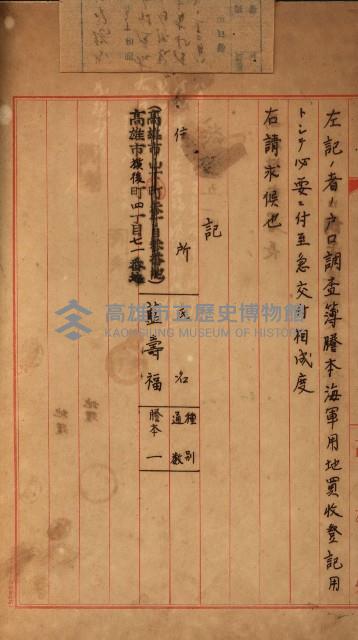 左記ノ者ノ戸口調査簿謄本海軍用地買收登記用
トシテ必要ニ付至急交付相成度
右請求候也
記
住所
氏名
種別
通數
(高雄市山下町
高雄市旗後町四丁目七一番地
藍壽福
謄本
一
高雄市立歷史博物館
KAOHSIUNG MUSEUM OF HISTORY